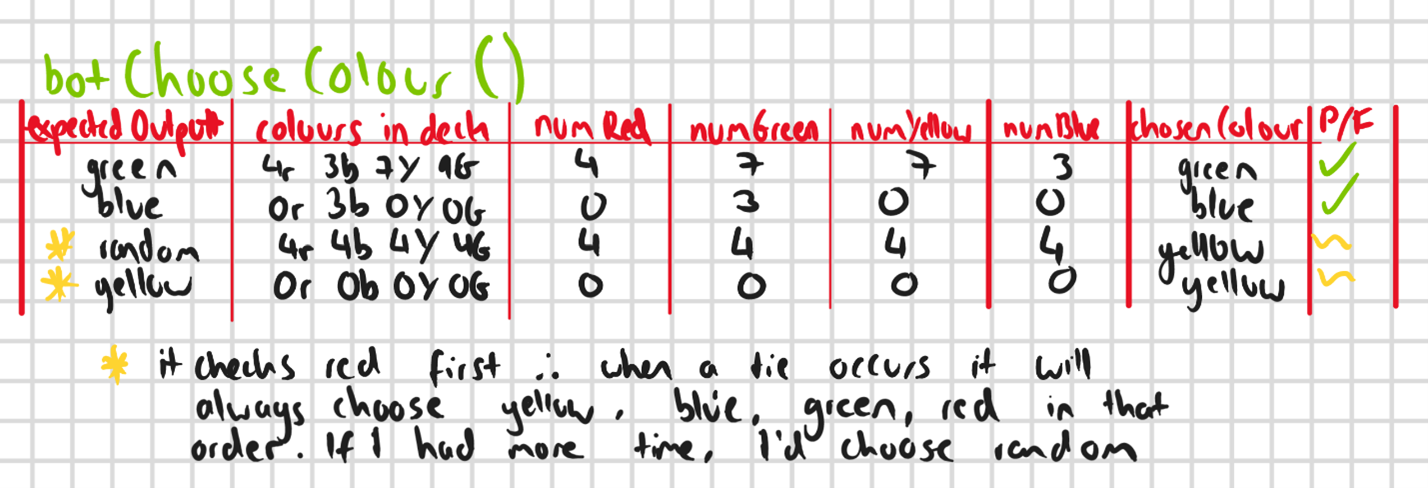 botChooseColour()
expected Output colours in deck numRed numGreen numYellow numBlue chosenColour P/F
green 4r 3b 7Y 9G 4 7 7 3 green ✓
blue 0r 3b 0Y 0G 0 3 0 0 blue ✓
* random 4r 4b 4Y 4G 4 4 4 4 yellow ~
* yellow 0r 0b 0Y 0G 0 0 0 0 yellow ~
* it checks red first ∴ when a tie occurs it will
always choose yellow, blue, green, red in that
order. If I had more time, I'd choose random